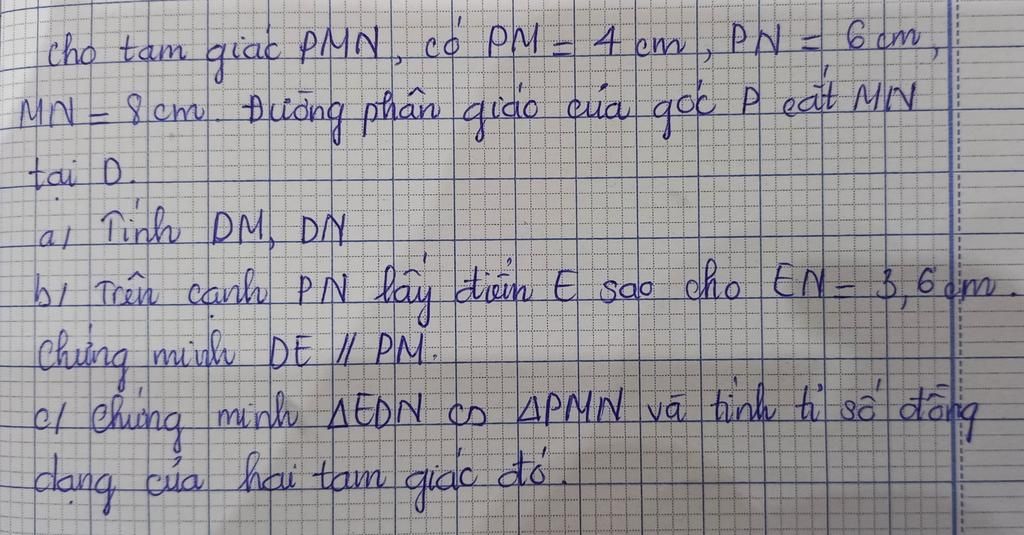 cho tam giác PMN, có PM = 4 cm, PN = 6 cm,
MN = 8 cm. Đường phân giác của góc P cắt MN
tại D.
a/ Tính DM, DN
b/ Trên cạnh PN lấy điểm E sao cho EN = 3,6 cm.
Chứng minh DE // PM.
c/ Chứng minh ΔEDN ∽ ΔPMN và tính tỉ số đồng
dạng của hai tam giác đó.